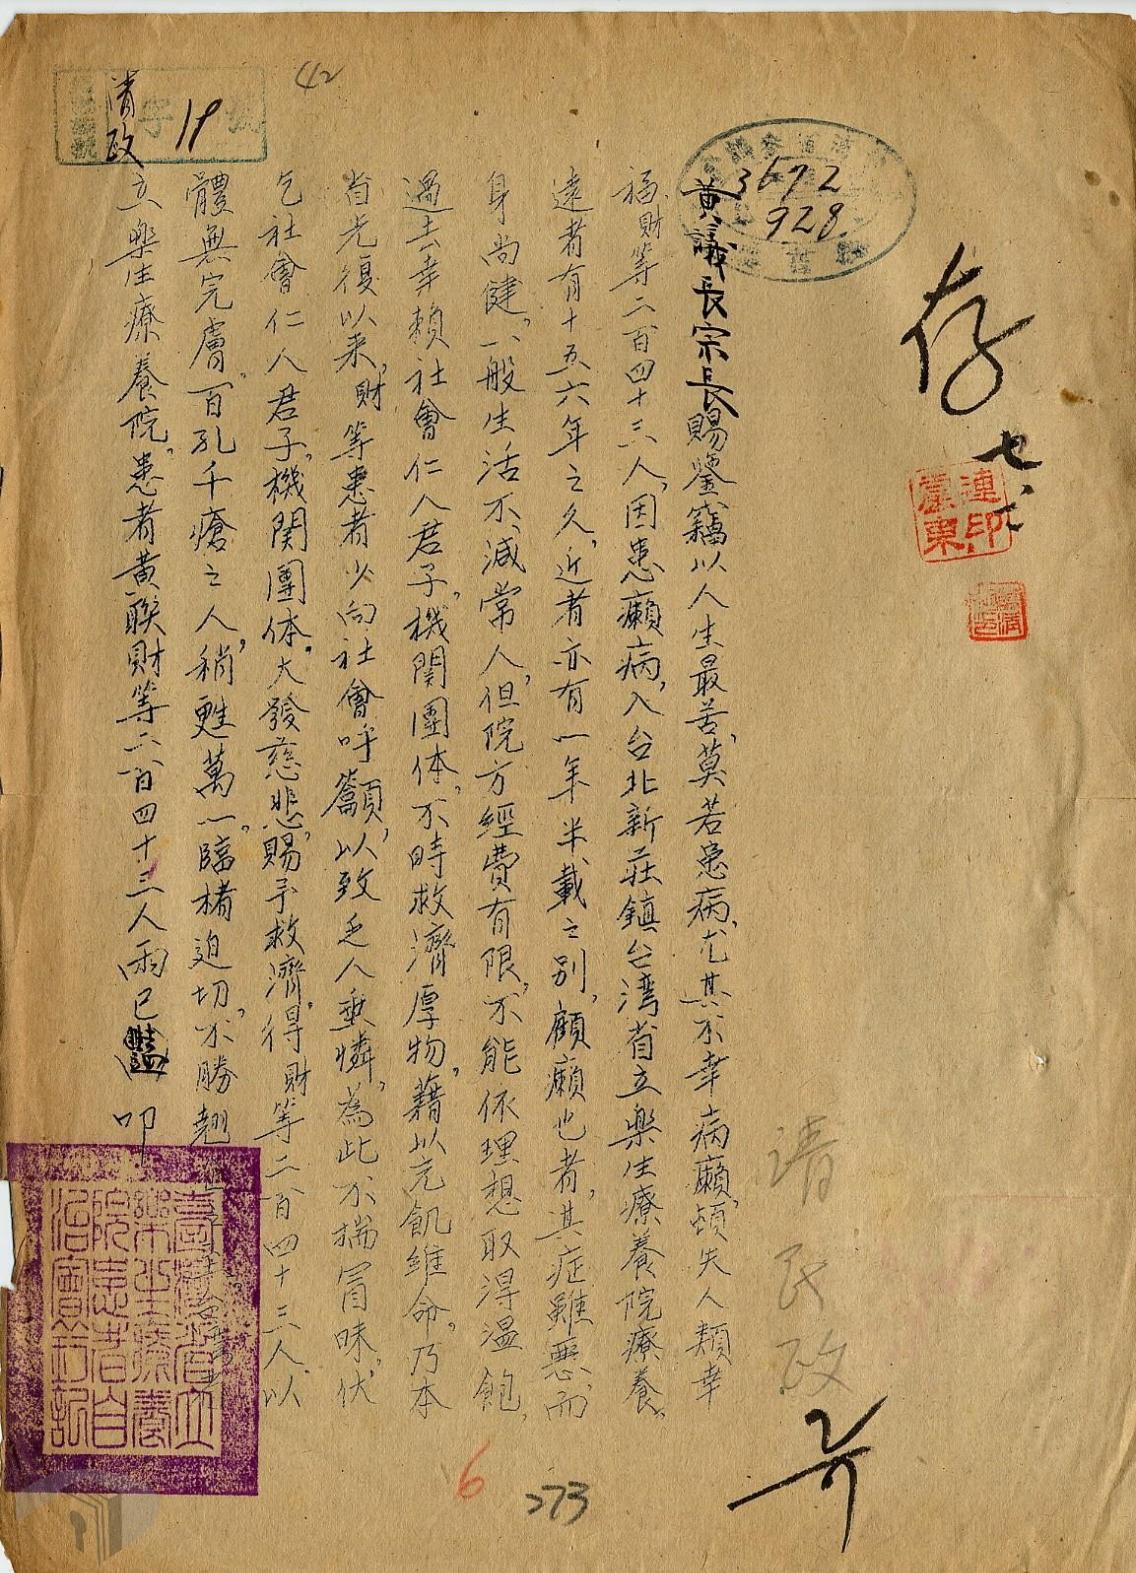 42
清政
字 19 號
3672
928
存
七、六
連東印
黃議長宗長賜鑒竊以人生最苦,莫若患病,尤其不幸病癩,頓失人類幸
福,財等二百四十三人,因患癩病,入台北新莊鎮台湾省立樂生療養院療養。
遠者有十五六年之久,近者亦有一年半載之別,顧癩也者,其症雖惡,而
身尚健,一般生活不減常人,但院方經費有限,不能依理想取得溫飽,
過去幸賴社會仁人君子,機関團体,不時救濟厚物,藉以充飢維命,乃本
省光復以来,財等患者少向社會呼籲,以致乏人垂憐,為此不揣冒昧,伏
乞社會仁人君子,機関團体,大發慈悲,賜予救濟,得財等二百四十三人,以
體無完膚,百孔千瘡之人,稍甦萬一,臨楮迫切,不勝翹
立樂生療養院,患者黃聯財等二百四十三人 叩
臺灣省立
樂生療養
院患者自
治會箚記
請民政
6
273